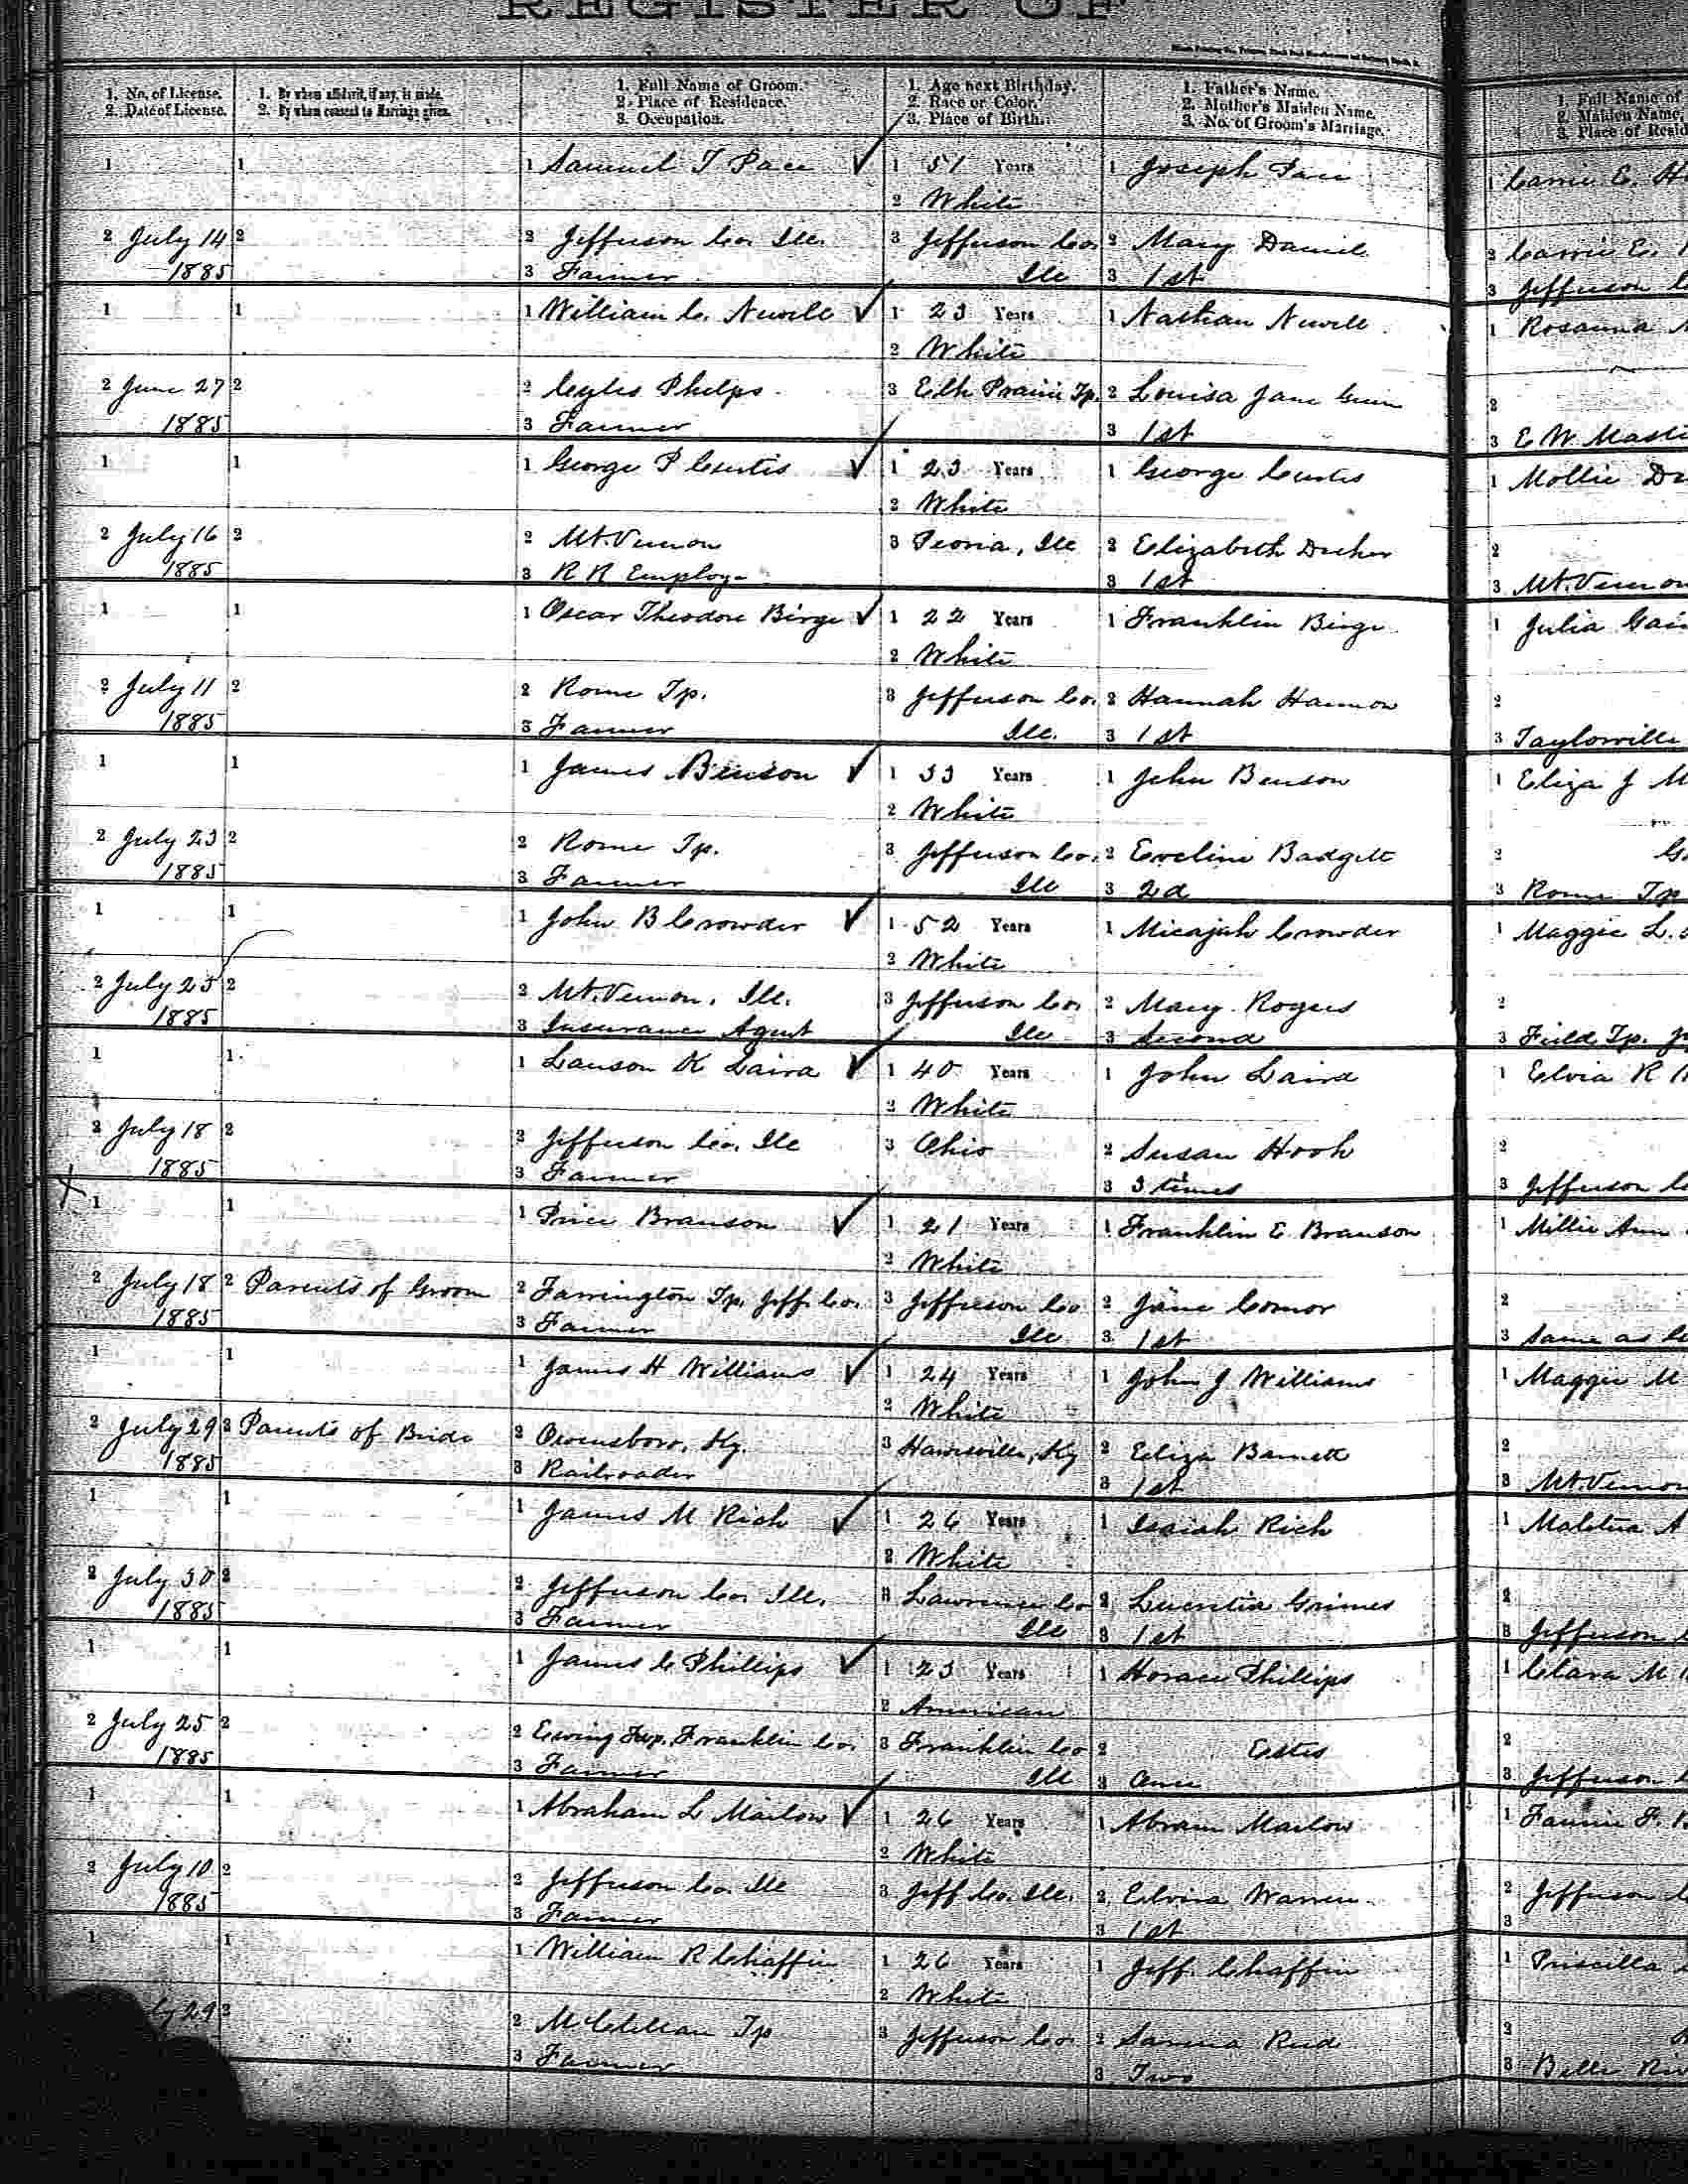 REGISTER OF
1. No. of License. 1. By whom affidavit, if any, is made. 1. Full Name of Groom. 1. Age next Birthday. 1. Father's Name. 1. Full Name of
2. Date of License. 2. By whom consent to Marriage given. 2. Place of Residence. 2. Race or Color. 2. Mother's Maiden Name. 2. Maiden Name,
3. Occupation. 3. Place of Birth. 3. No. of Groom's Marriage. 3. Place of Resid
1 1 1 Samuel T Pace ✓ 1 51 Years 1 Joseph Pace 1 Carrie E. H
2 White
2 July 14 2 2 Jefferson Co. Ill. 3 Jefferson Co. 2 Mary Daniel 2 Carrie E.
1885 3 Farmer Ill 3 1st 3 Jefferson C
1 1 1 William C. Newell ✓ 1 23 Years 1 Nathan Newell 1 Rosanna
2 White
2 June 27 2 2 Cyles Phelps 3 Elk Prairie Tp. 2 Louisa Jane 2
1885 3 Farmer 3 1st 3 E W Masti
1 1 1 George P Curtis ✓ 1 23 Years 1 George Curtis 1 Mollie D
2 White
2 July 16 2 2 Mt. Vernon 3 Peoria, Ill 2 Elizabeth 2
1885 3 R R Employe 3 1st 3 Mt. Vernon
1 1 1 Oscar Theodore Birge ✓ 1 22 Years 1 Franklin Birge 1 Julia Gai
2 White
2 July 11 2 2 Rome Tp. 3 Jefferson Co. 2 Hannah Harmon 2
1885 3 Farmer Ill. 3 1st 3 Taylorville
1 1 1 James Benson ✓ 1 33 Years 1 John Benson 1 Eliza J M
2 White
2 July 23 2 2 Rome Tp. 3 Jefferson Co. 2 Eveline Badgett 2 G
1885 3 Farmer Ill 3 2d 3 Rome Tp
1 1 1 John B Crowder ✓ 1 52 Years 1 Micajah Crowder 1 Maggie L.
2 White
2 July 25 2 2 Mt. Vernon, Ill. 3 Jefferson Co. 2 Mary Rogers 2
1885 3 Insurance Agent Ill 3 Second 3 Field Tp. J
1 1 1 Lauson K Laird ✓ 1 40 Years 1 John Laird 1 Elvia R
2 White
2 July 18 2 2 Jefferson Co. Ill 3 Ohio 2 Susan Hook 2
1885 3 Farmer 3 3 times 3 Jefferson C
1 1 1 Price Branson ✓ 1 21 Years 1 Franklin E. Branson 1 Millie Ann
2 White
2 July 18 2 Parents of Groom 2 Farrington Tp. Jeff. Co. 3 Jefferson Co 2 Jane Comor 2
1885 3 Farmer Ill 3 1st 3 Same as
1 1 1 James H Williams ✓ 1 24 Years 1 John J Williams 1 Maggie M
2 White
2 July 29 2 Parents of Bride 2 Owensboro, Ky. 3 Hawesville, Ky 2 Eliza Barnett 2
1885 3 Railroader 3 1st 3 Mt. Vernon
1 1 1 James M Rich ✓ 1 26 Years 1 Isaiah Rich 1 A
2 White
2 July 30 2 2 Jefferson Co. Ill. 3 Lawrence Co 2 Lucretia Grimes 2
1885 3 Farmer Ill 3 1st 3 Jefferson C
1 1 1 James C Phillips ✓ 1 23 Years 1 Horace Phillips 1 Clara M
2 American
2 July 25 2 2 Ewing Twp. Franklin Co. 3 Franklin Co 2 Estes 2
1885 3 Farmer Ill 3 Once 3 Jefferson C
1 1 1 Abraham L Marlow ✓ 1 26 Years 1 Abram Marlow 1 Fannie F.
2 White
2 July 10 2 2 Jefferson Co. Ill 3 Jeff Co. Ill. 2 Elvira Warren 2 Jefferson C
1885 3 Farmer 3 1st 3
1 1 1 William R Chaffin 1 26 Years 1 Jeff. Chaffin 1 Priscilla
2 White
ly 29 2 2 McClellan Tp 3 Jefferson Co. 2 Reid 2
3 Farmer 3 Two 3 Belle Riv